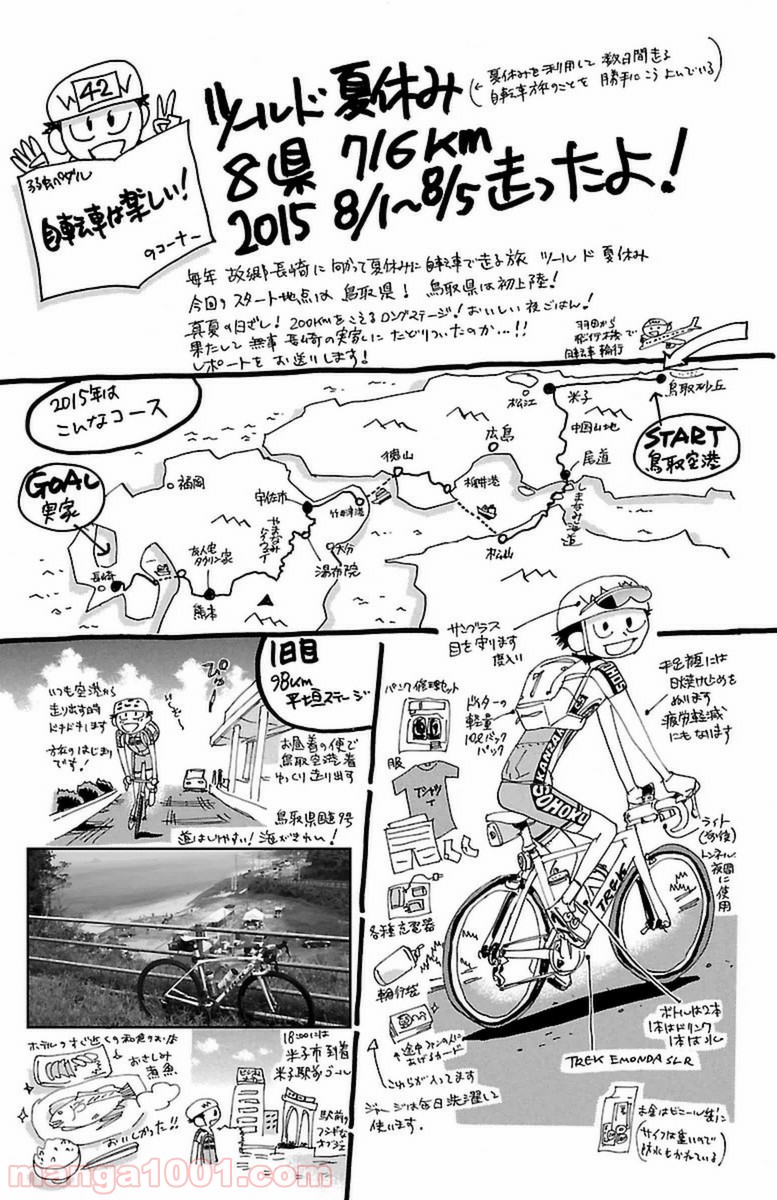 42
弱虫ペダル
自転車は楽しい!
のコーナー
ツールド夏休み
(←夏休みを利用して数日間走る
自転車旅のことを勝手にこうよんでいる)
8県 716km
2015 8/1〜8/5走ったよ!
毎年 故郷長崎に向かって夏休みに自転車で走る旅 ツールド夏休み
今回のスタート地点は鳥取県! 鳥取県は初上陸!
真夏の日ざし! 200kmをこえるロングステージ! おいしい夜ごはん!
果たして無事長崎の実家にたどりついたのか…!!
レポートをお送りします!
羽田から
飛行機で
自転車輪行
2015年は
こんなコース
鳥取砂丘
START
鳥取空港
米子
松江
中国山地
尾道
しまなみ海道
広島
松山
柳井港
徳山
竹田津港
宇佐市
大分
湯布院
やまなみハイウェイ
福岡
熊本
友人宅
長崎
GOAL
実家
1日目
98km
平坦ステージ
いつも空港から
走り出す時
ドキドキします
旅のはじまり
です!
ぴー
お昼着の便で
鳥取空港着
ゆっくり走り出す
鳥取県国道9号
道はしりやすい! 海がきれい!
ホテルのすぐ近くの和食のお店
おさしみ
煮魚
おいしかった!!
18:00には
米子市到着
米子駅前ゴール
駅前の
フシギな
オブジェ
サングラス
目を守ります
度入り
手足顔には
日焼け止めを
ぬります
疲労軽減
にもなります
ドイターの
軽量
10ℓバック
パック
パンク修理セット
服
Tシャツ
各種充電器
輪行袋
途中ファンの人に
あげるカード
こちらが入ってます
ジャージは毎日洗濯して
使います。
SOHOKU
KANZAKI
TREK
ライト
(前後)
トンネル
夜間に
使用
ボトルは2本
1本はドリンク
1本は水
TREK EMONDA SLR
お金はビニール袋に
(サイフは重いので
防水もかねている)
manga1001.com